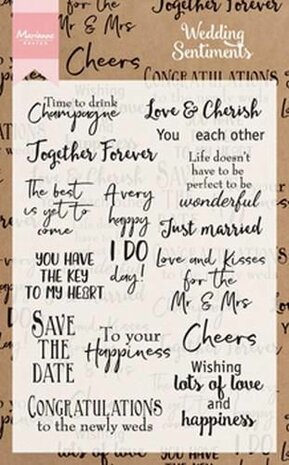 Marianne
DESIGN
Wedding
Sentiments
Together Forever
Mr & Mrs
Cheers
CONGRATULATIONS
Time to drink
Champagne
Love & Cherish
You each other
Together Forever
Life doesn't
have to be
perfect to be
wonderful
The best
is yet to
come
A very
happy
I DO
day!
Just married
YOU HAVE
THE KEY
TO MY HEART
Love and Kisses
for the
Mr & Mrs
SAVE
THE
DATE
To your
Happiness
Cheers
Wishing
lots of love
and
happiness
CONGRATULATIONS
to the newly weds